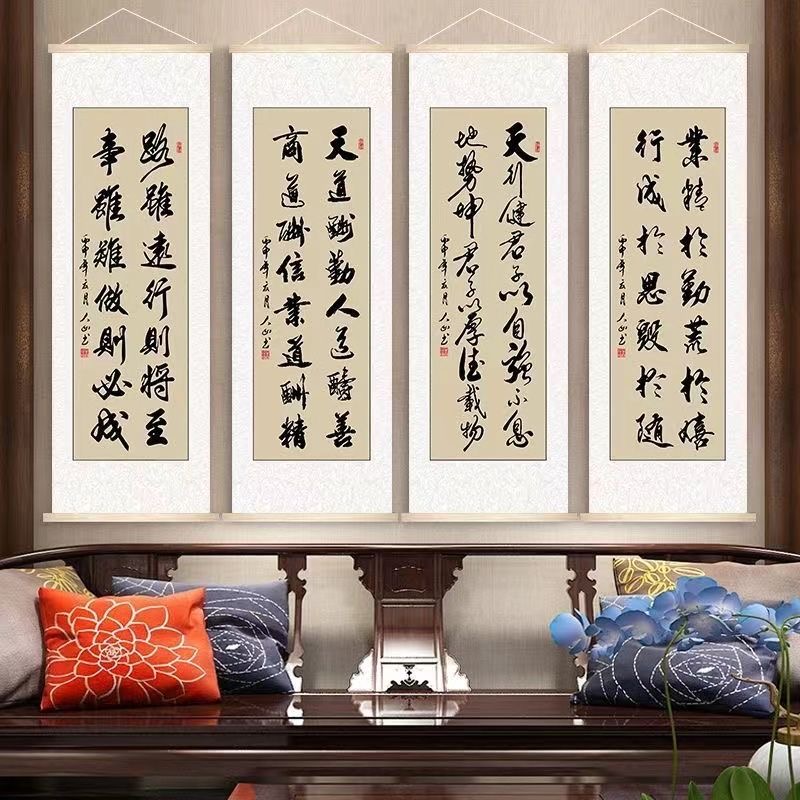 路雖遠行則將至
事雖難做則必成
天道酬勤人道醻善
商道酬信業道酬精
天行健君子以自強不息
地勢坤君子以厚德載物
業精於勤荒於嬉
行成於思毀於随